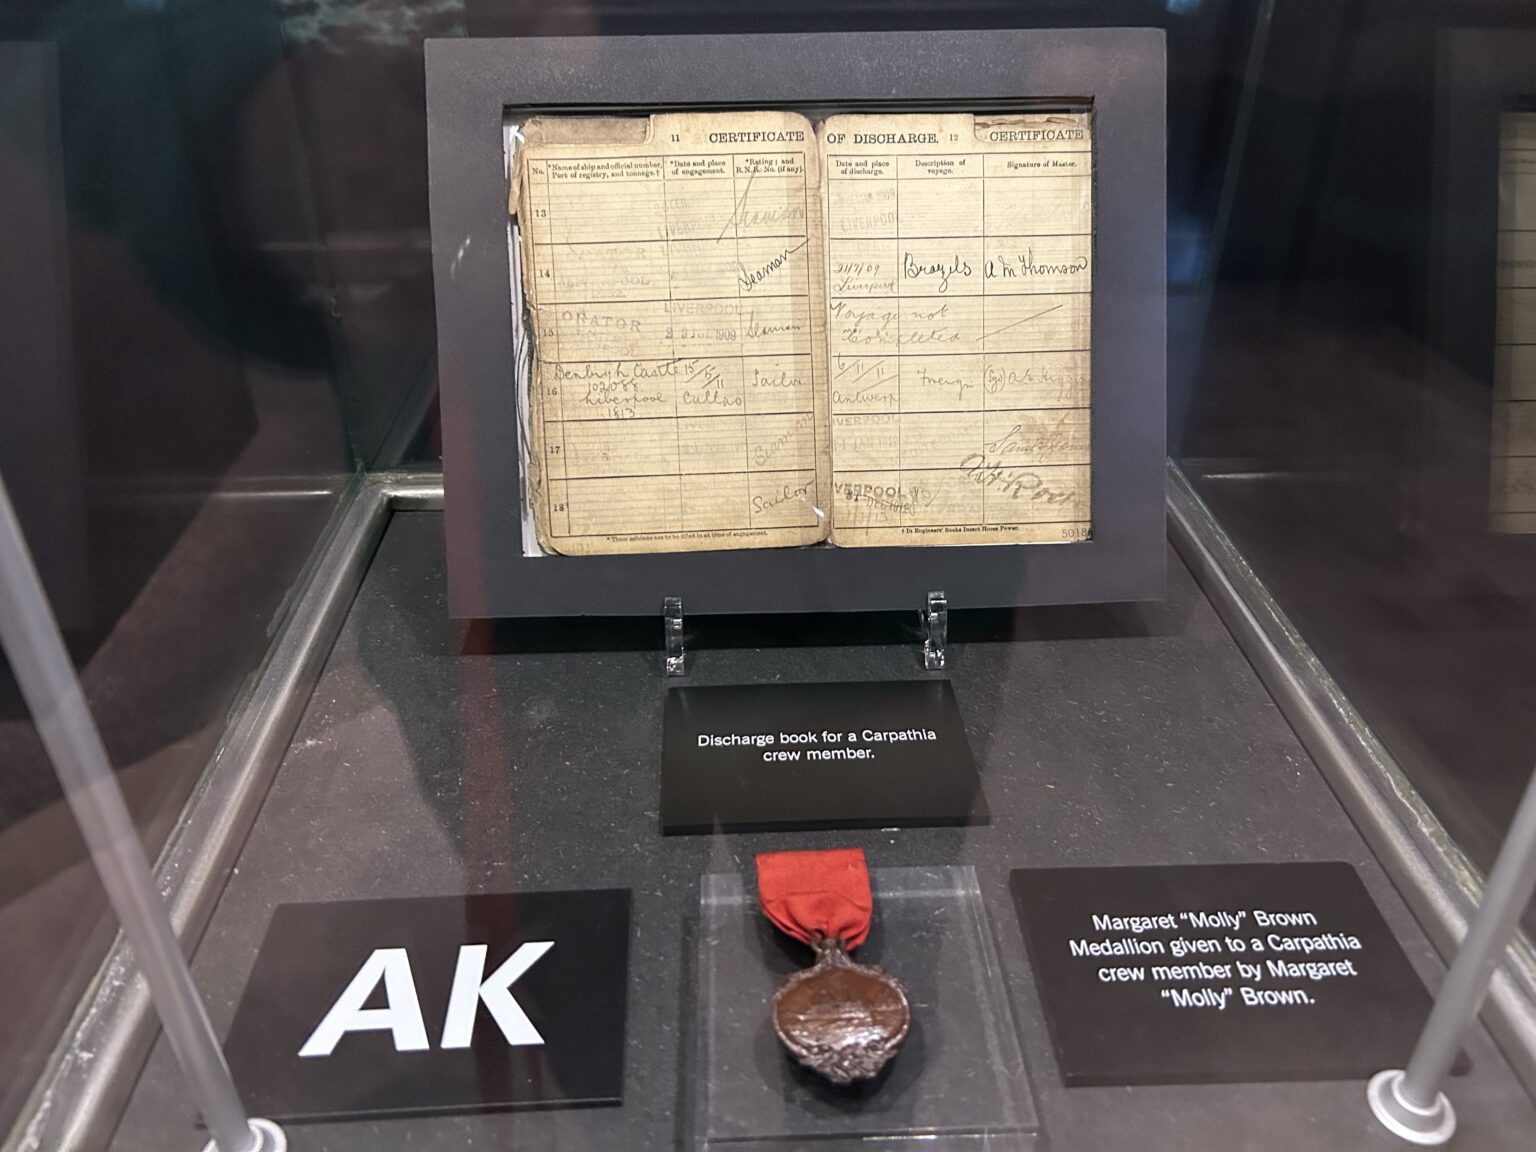 11 CERTIFICATE OF DISCHARGE. 12 CERTIFICATE
No. *Name of ship and official number, Port of registry, and tonnage.† *Date and place of engagement. *Rating; and R.N.R. No. (if any). Date and place of discharge. Description of voyage. Signature of Master.
13 LIVERPOOL Seaman LIVERPOOL
14 Seaman 21/7/09 Liverpool Brazils A M Thomson
15 ORATOR LIVERPOOL JUL 1909 Seaman Voyage not Completed
16 Denbigh Castle 102088 Liverpool 1813 15/5/11 Callao Sailor 6/11/11 Antwerp Foreign (Sgd)
17 Seaman
18 Sailor
* These columns are to be filled in at time of engagement.
† In Engineers' Books Insert Horse Power.
Discharge book for a Carpathia
crew member.
AK
Margaret “Molly” Brown
Medallion given to a Carpathia
crew member by Margaret
“Molly” Brown.